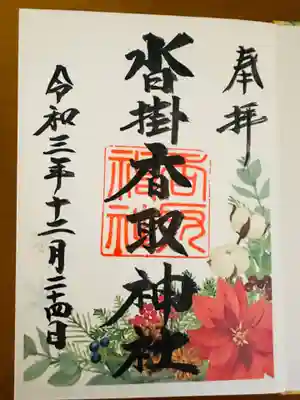 奉拝
沓掛香取神社
令和三年十二月二十四日